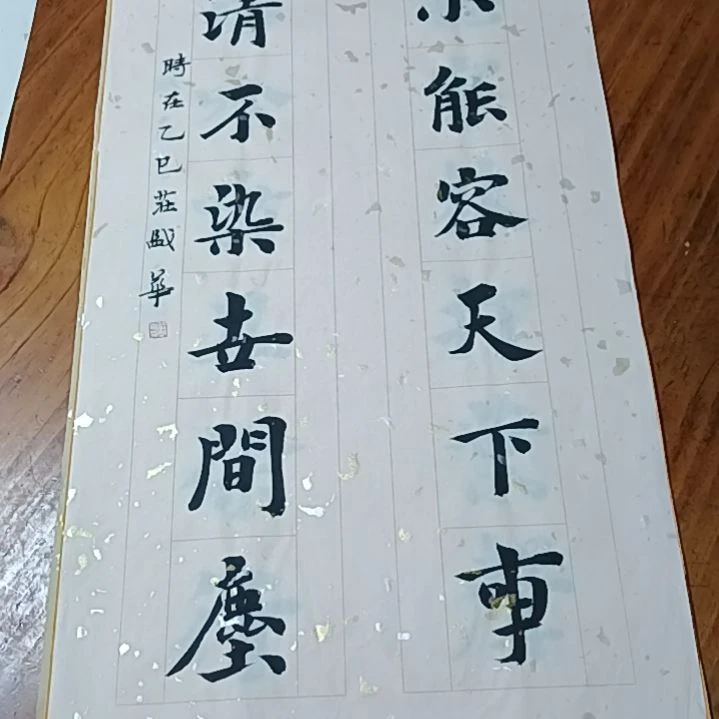 小能容天下事
清不染世間塵
時在乙巳莊華